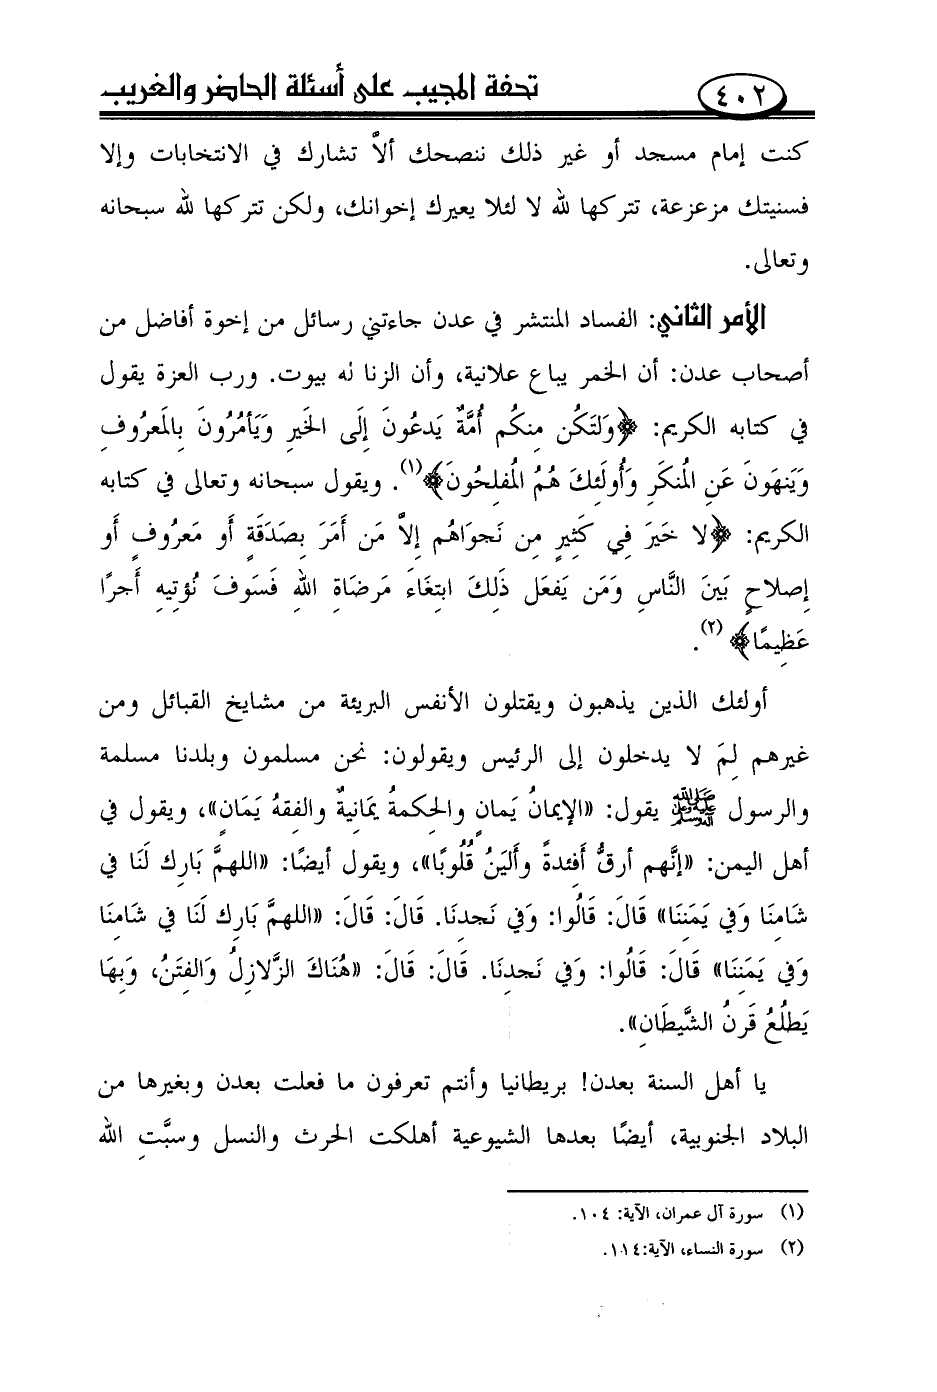 ٤٠٢
تحفة المجيب على أسئلة الحاضر والغريب
كنت إمام مسجد أو غير ذلك ننصحك ألاَّ تشارك في الانتخابات وإلا
فسنيتك مزعزعة، تتركها لله لا لئلا يعيرك إخوانك، ولكن تتركها لله سبحانه
وتعالى.
الأمر الثاني: الفساد المنتشر في عدن جاءتني رسائل من إخوة أفاضل من
أصحاب عدن: أن الخمر يباع علانية، وأن الزنا له بيوت. ورب العزة يقول
في كتابه الكريم: ﴿وَلتَكُن مِنكُم أُمَّةٌ يَدعُونَ إِلَى الخَيرِ وَيَأمُرُونَ بِالمَعرُوفِ
وَيَنهَونَ عَنِ المُنكَرِ وَأُولَئِكَ هُمُ المُفلِحُونَ﴾(١). ويقول سبحانه وتعالى في كتابه
الكريم: ﴿لا خَيرَ فِي كَثِيرٍ مِن نَجوَاهُم إِلاَّ مَن أَمَرَ بِصَدَقَةٍ أَو مَعرُوفٍ أَو
إِصلاحٍ بَينَ النَّاسِ وَمَن يَفعَل ذَلِكَ ابتِغَاءَ مَرضَاةِ اللهِ فَسَوفَ نُؤتِيهِ أَجرًا
عَظِيمًا﴾ (٢).
أولئك الذين يذهبون ويقتلون الأنفس البريئة من مشايخ القبائل ومن
غيرهم لِمَ لا يدخلون إلى الرئيس ويقولون: نحن مسلمون وبلدنا مسلمة
والرسول ﷺ يقول: «الإيمانُ يَمانٍ والحِكمةُ يمَانِيةٌ والفِقهُ يَمَانٍ»، ويقول في
أهل اليمن: «إنَّهم أرقُّ أَفئدةً وأَليَنُ قُلُوبًا»، ويقول أيضًا: «اللهمَّ بَارِك لَنَا في
شَامِنَا وَفي يَمَنِنَا» قَالَ: قَالُوا: وَفي نَجدِنَا. قَالَ: قَالَ: «اللهمَّ بَارِك لَنَا في شَامِنَا
وَفي يَمَنِنَا» قَالَ: قَالُوا: وَفي نَجدِنَا. قَالَ: قَالَ: «هُنَاكَ الزَّلازِلُ وَالفِتَنُ، وَبِهَا
يَطلُعُ قَرنُ الشَّيطَانِ».
يا أهل السنة بعدن! بريطانيا وأنتم تعرفون ما فعلت بعدن وبغيرها من
البلاد الجنوبية، أيضًا بعدها الشيوعية أهلكت الحرث والنسل وسبَّتِ الله
(١) سورة آل عمران، الآية: ١٠٤.
(٢) سورة النساء، الآية:١١٤.